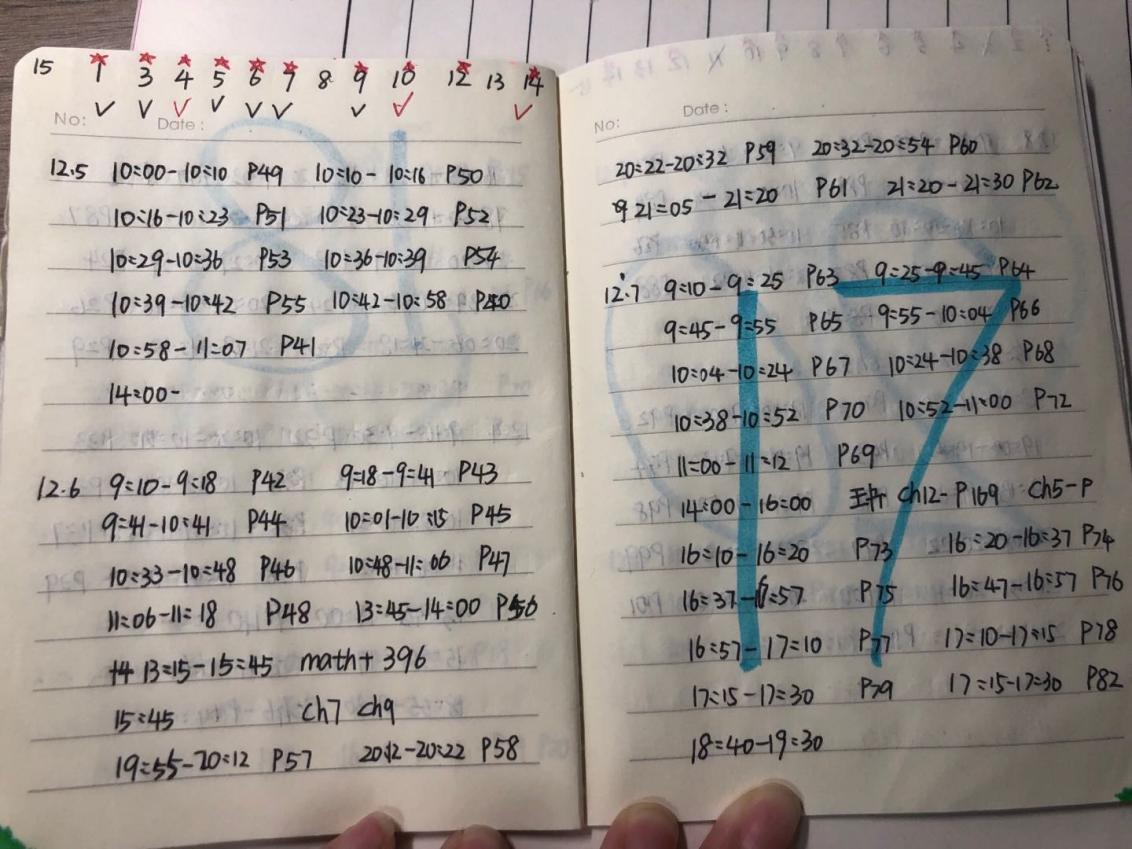 15 1 3 4 5 6 7 8 9 10 12 13 14
No: Date:
12.5 10=00-10=10 P49 10=10-10=16-P50
10=16-10=23 P51 10=23-10=29 P52
10=29-10=36 P53 10=36-10=39 P54
10=39-10=42 P55 10=42-10=58 P40
10=58-11=07 P41
14=00-
12.6 9=10-9=18 P42 9=18-9=41 P43
9=41-10=41 P44 10=01-10=15 P45
10=33-10=48 P46 10=48-11=06 P47
11=06-11=18 P48 13=45-14=00 P56
13=15-15=45 math+396
15=45 ch7 ch9
19=55-20=12 P57 20=12-20=22 P58
No: Date:
20=22-20=32 P59 20=32-20=54 P60
21=05-21=20 P61 21=20-21=30 P62
12.7 9=10-9=25 P63 9=25-9=45 P64
9=45-9=55 P65 9=55-10=04 P66
10=04-10=24 P67 10=24-10=38 P68
10=38-10=52 P70 10=52-11=00 P72
11=00-11=12 P69
14=00-16=00 Ch12-P169 Ch5-P
16=10-16=20 P73 16=20-16=37 P74
16=37-16=57 P75 16=47-16=57 P76
16=57-17=10 P77 17=10-17=15 P78
17=15-17=30 P79 17=15-17=30 P82
18=40-19=30
17